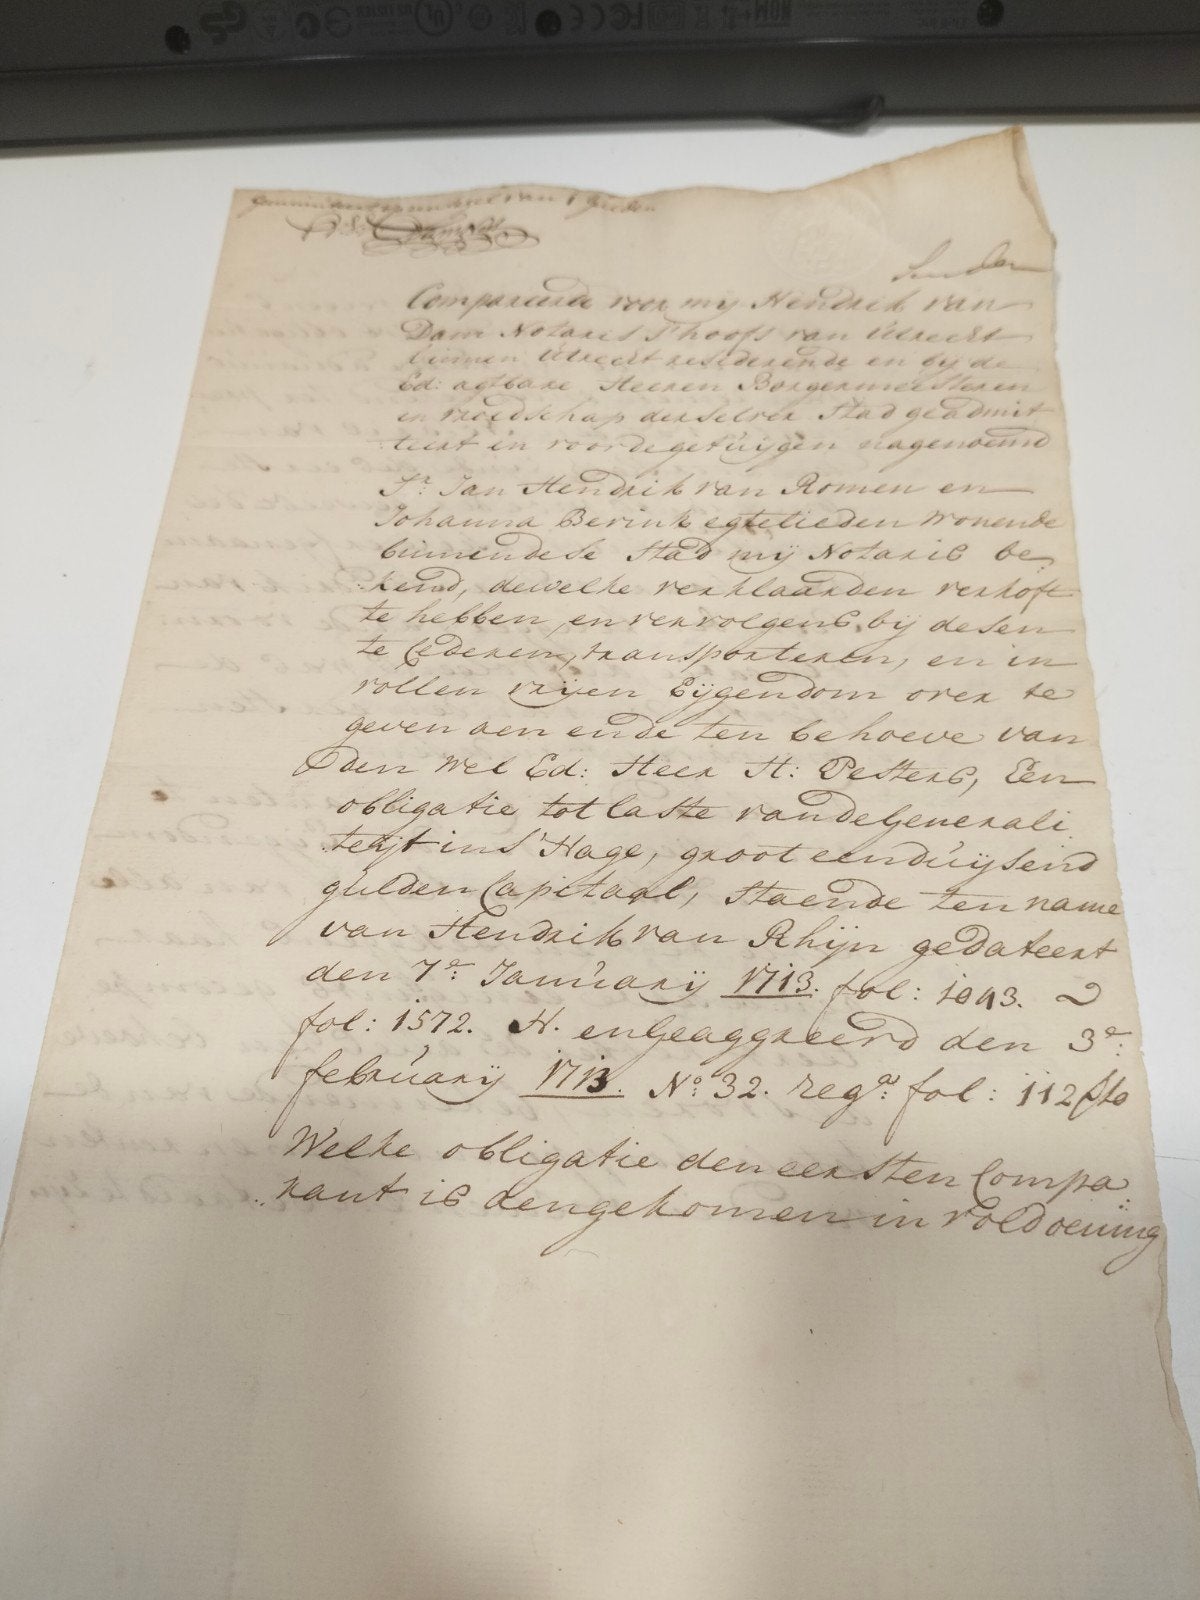 Compareerde voor mij Hendrik van
Dam Notaris s'hoofs van Utrecht
binnen Utrecht resideerende en bij de
Ed: agtbare Heeren Borgermeesteren
en vroedschap derselver Stad geadmit
teert in voor de getuijgen nagenoemd
Sr: Jan Hendrik van Romen en
Johanna Berink egtelieden wonende
binnen dese Stad mij Notaris be
kend, dewelke verklaarden verkoft
te hebben, en vervolgens bij desen
te Cederen, transporteren, en in
vollen vrijen Eijgendom over te
geven aen ende ten behoeve van
den wel Ed: Heer H: Pesters, Een
obligatie tot laste van de Generali
teijt in S'Hage, groot een duijsend
gulden Capitaal, Staende ten name
van Hendrik van Rhijn gedateert
den 7e: Januarij 1713. fol: 1093.
fol: 1572. H. en Geaggreerd den 3e:
februarij 1713. No: 32. regt: fol: 112
Welke obligatie den eersten Compa
rant is aengekomen in voldoening